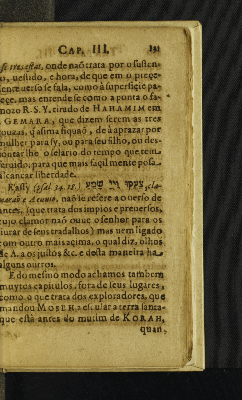 CAP. III. 191
se tres estas, onde naõ trata por o susten-
o, uestido, e hora, de que em o preçe-
sente uerso se fala, como à superfiçie pa-
reçe. mas entende se como a ponta o fa-
mozo R. S. Y. tirado de HAHAMIM em
GEMARA, que dizem serem as tres
couzas, q̃ assima siquaõ, de a aprazar por
mulher para sy, ou para seu filho, ou des-
contar lhe o selario do tempo que tem
seruido, para que mais façilmente possa
alcançar liberdade.
E assy (psal. 34. 18.) צעקו ויי שמע, cla-
maraõ e A. ouuio, naõ se refere a o uerso de
antes, (que trata dos impios e preuersos,
cujo clamor naõ ouue o senhor para os
liurar de seus trabalhos) mas uem ligado
com outro mais açima, o qual diz, olhos
de A. a os justos &c. e desta maneira ha
alguns outros.
E do mesmo modo achamos tambem
muytos capitulos, fora de seus lugares,
como o que trata dos exploradores, que
mandou MOSEH, a espiar a terra santa
que está antes do mutim de KORAH,
quan-